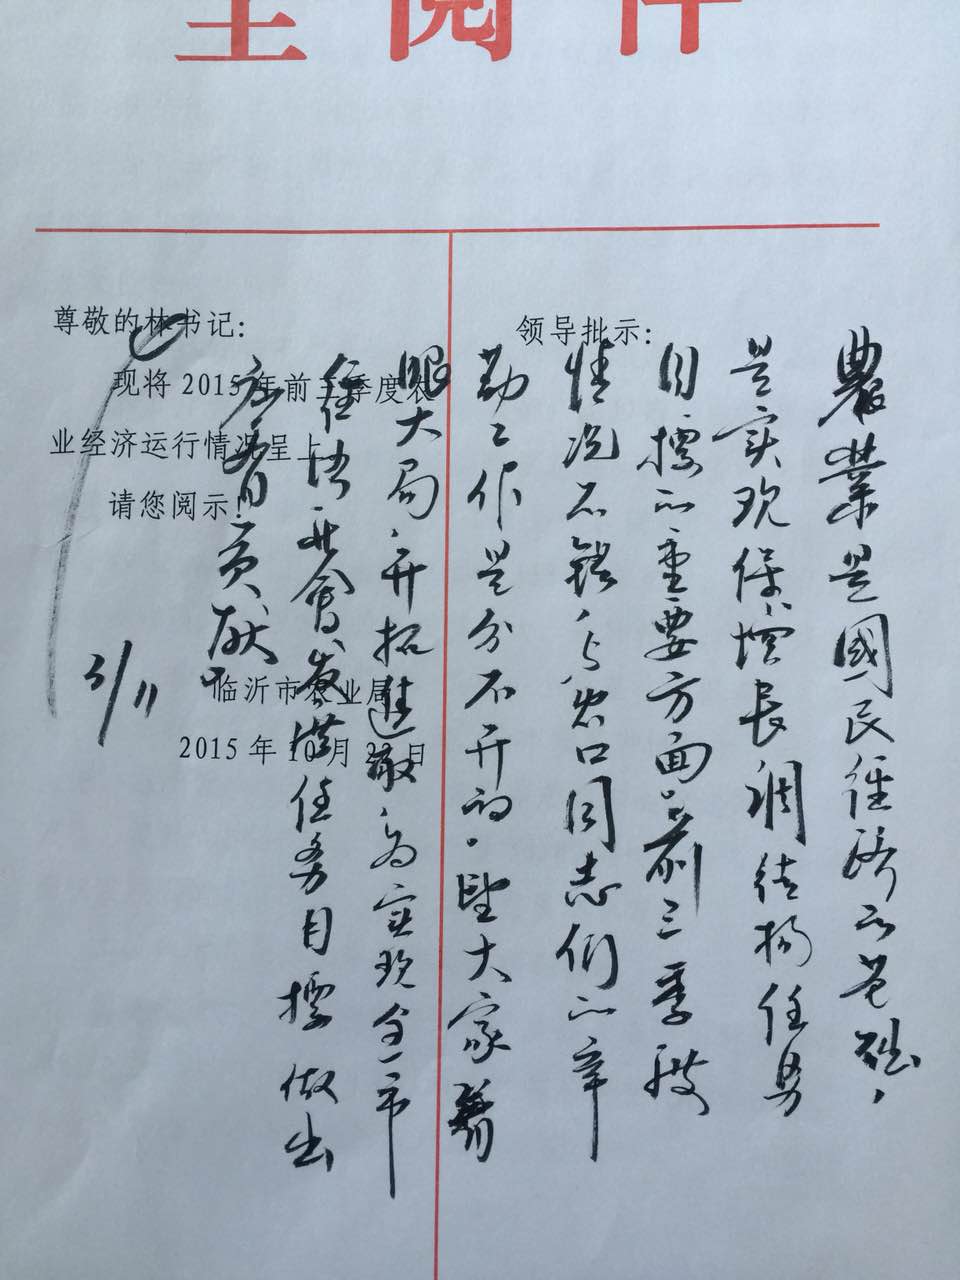 呈阅件
尊敬的林书记：
现将 2015 年前三季度农
业经济运行情况呈上，
请您阅示！
临沂市农业局
2015 年 10 月 22 日
领导批示：
農業是國民经济的基础，
是实现保增长、调结构任务
目標的重要方面。前三季度
情况不错，与农口同志们的辛
勤工作是分不开的。望大家着
眼大局，开拓進取，为实现全市
经济社會發展任务目標做出
应有贡献。
3/11